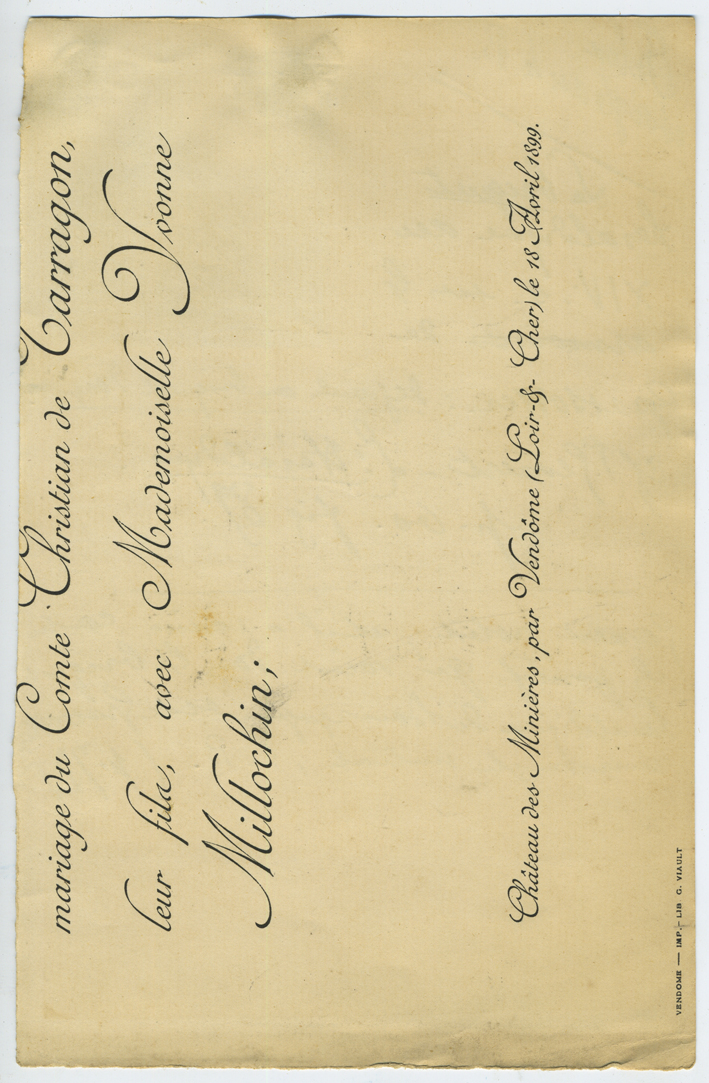 mariage du Comte Christian de Tarragon,
leur fils, avec Mademoiselle Yvonne
Millochin;
Château des Minières, par Vendôme (Loir-&-Cher) le 18 Avril 1899.
VENDOME — IMP.-LIB G. VIAULT